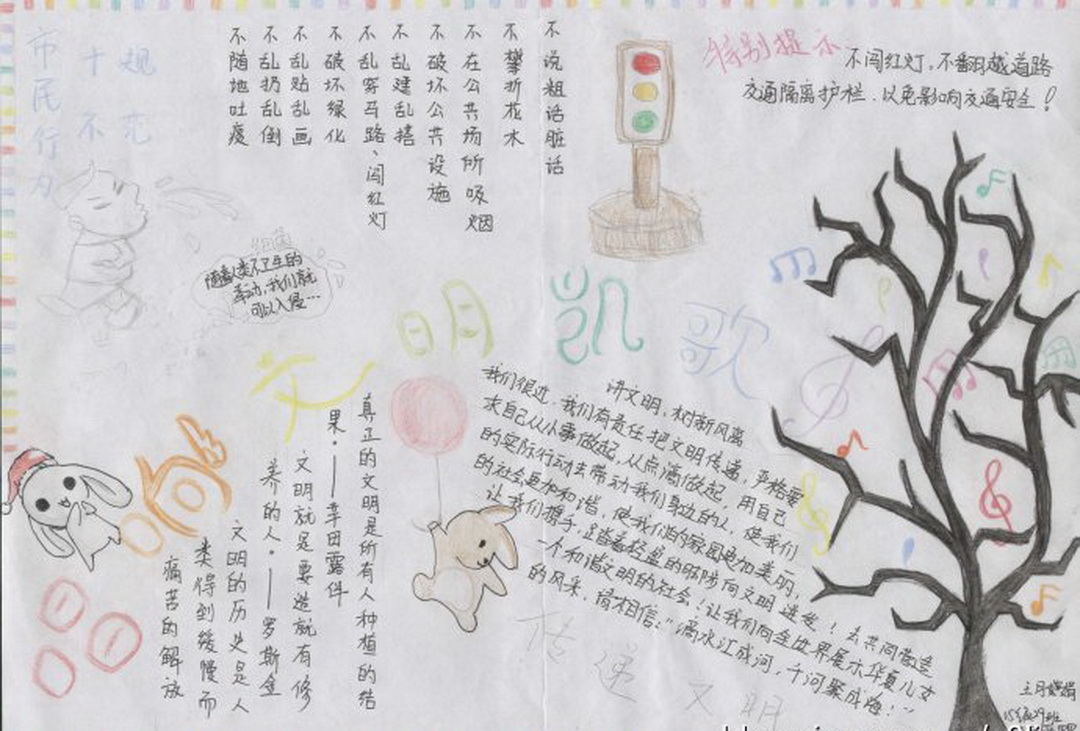 市民行为
十不
规范
不说粗话脏话
不攀折花木
不在公共场所吸烟
不破坏公共设施
不乱建乱搭
不乱穿马路、闯红灯
不破坏绿化
不乱贴乱画
不乱扔乱倒
不随地吐痰
特别提示
不闯红灯,不翻越道路
交通隔离护栏,以免影响交通安全!
细菌
随着人类不卫生的
举动,我们就
可以入侵…
文明凯歌
向
真正的文明是所有人种植的结
果·——幸田露伴
文明就是要造就有修
养的人·——罗斯金
文明的历史是人
类得到缓慢而
痛苦的解放
讲文明,树新风离
我们很近,我们有责任把文明传递,严格要
求自己从小事做起,从点滴做起,用自己
的实际行动去带动我们身边的人,使我们
的社会更加和谐,使我们的家园更加美丽,
让我们携手,踏着轻盈的脚步向文明进发!去共同营造
一个和谐文明的社会!让我们向全世界展示华夏儿女
的风采,相信:“滴水江成河,千河聚成海!”
传递文明